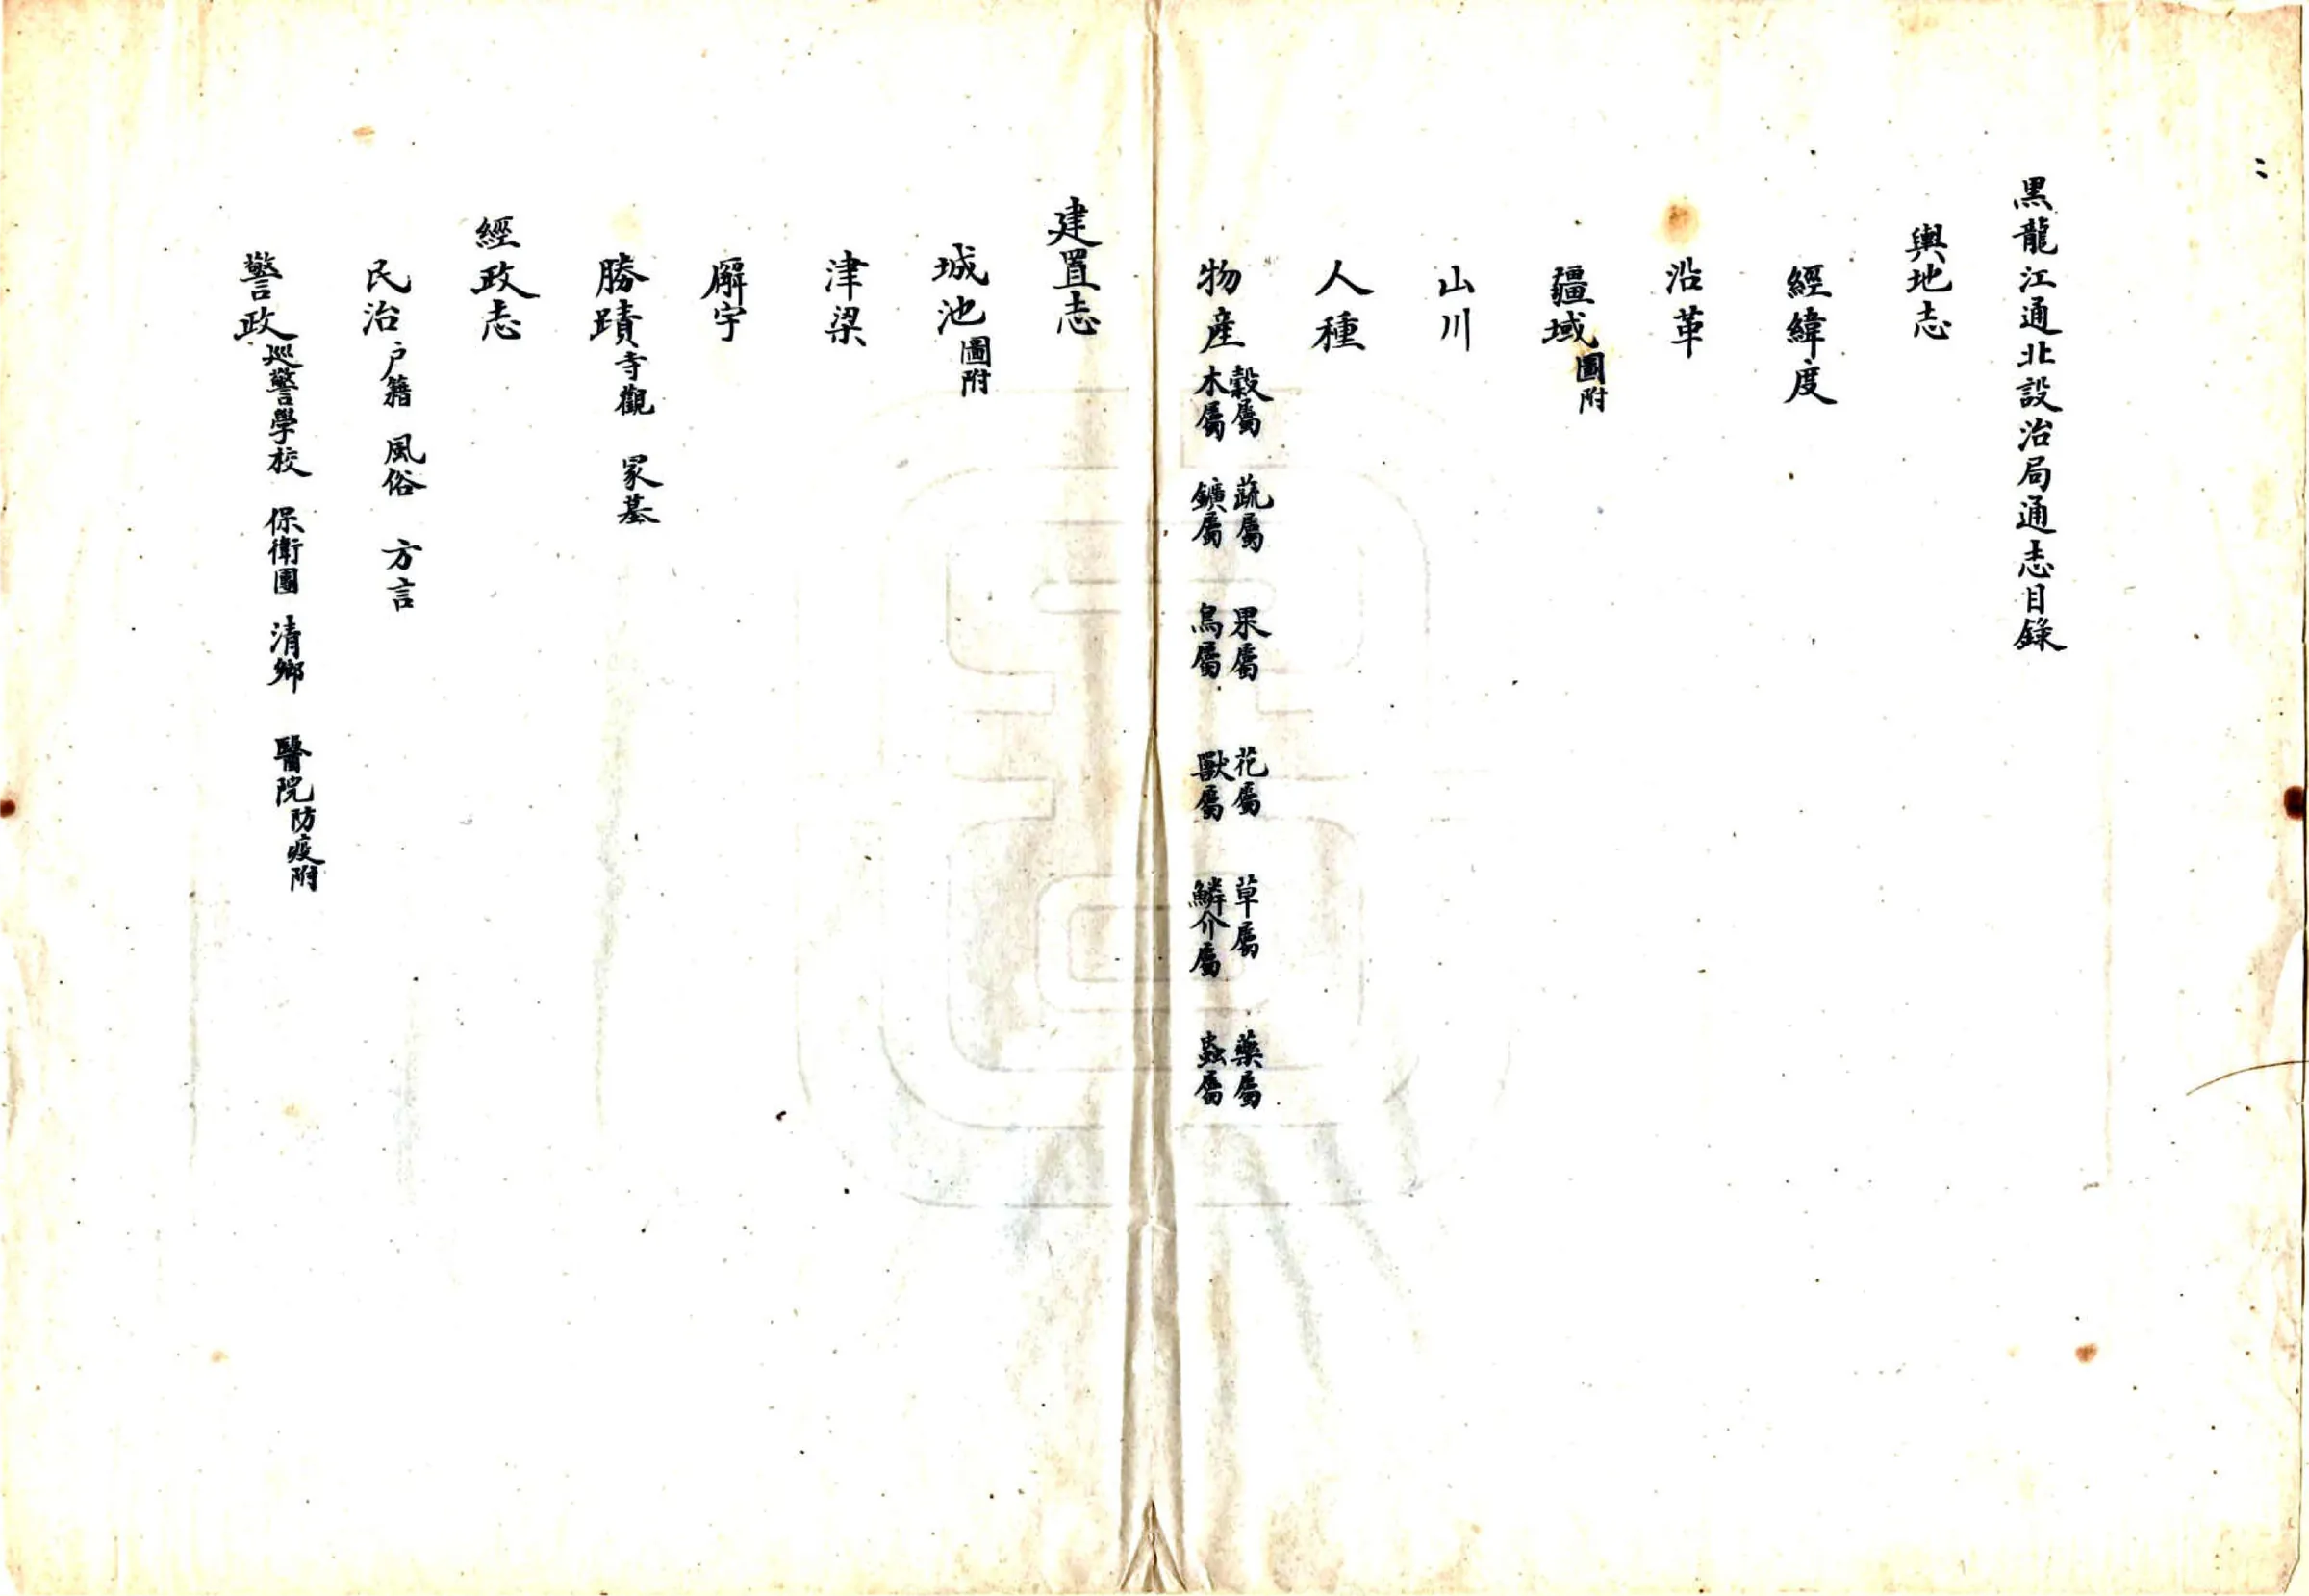 黑龍江通北設治局通志目錄
輿地志
經緯度
沿革
疆域圖附
山川
人種
物產
穀屬 蔬屬 果屬 花屬 草屬 藥屬
木屬 鑛屬 鳥屬 獸屬 鱗介屬 蟲屬
建置志
城池圖附
津梁
廨宇
勝蹟寺觀 冢墓
經政志
民治戶籍 風俗 方言
警政巡警學校 保衛團 清鄉 醫院防疫附